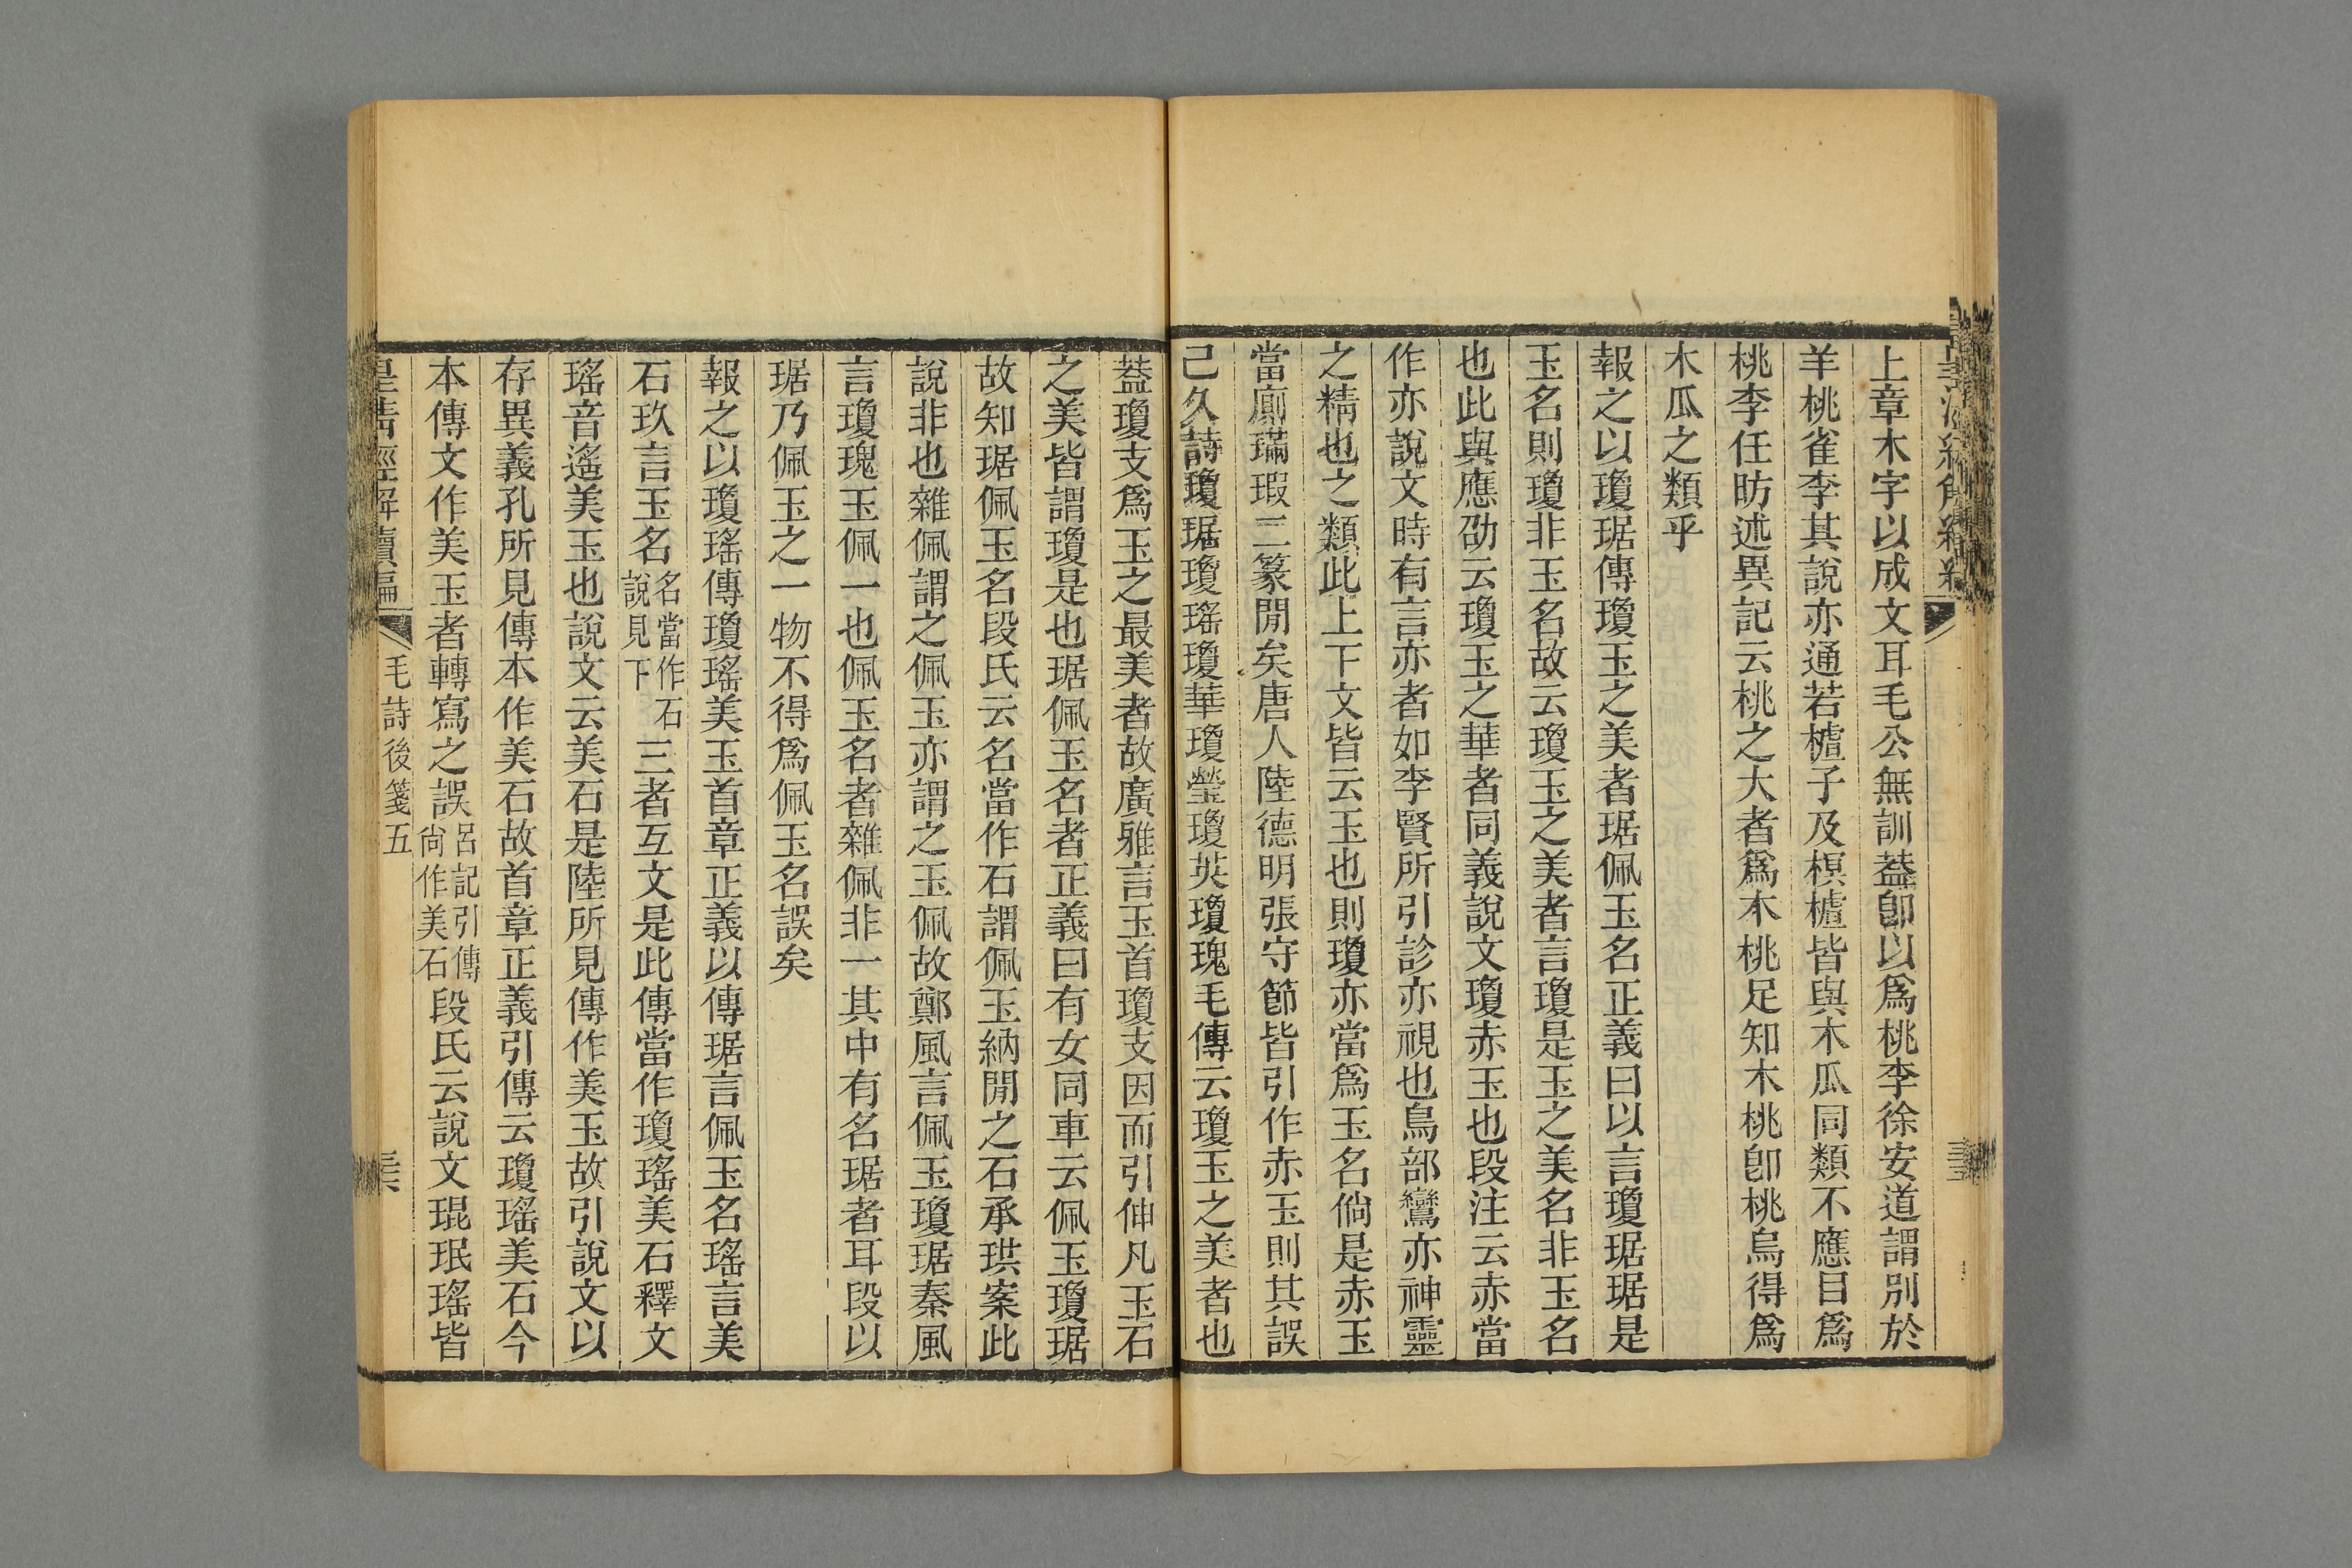 上章木字以成文耳毛公無訓葢卽以爲桃李徐安道謂別於
羊桃雀李其說亦通若樝子及榠樝皆與木瓜同類不應目爲
桃李任昉述異記云桃之大者爲木桃足知木桃卽桃烏得爲
木瓜之類乎
報之以瓊琚傳瓊玉之美者琚佩玉名正義曰以言瓊琚琚是
玉名則瓊非玉名故云瓊玉之美者言瓊是玉之美名非玉名
也此與應劭云瓊玉之華者同義說文瓊赤玉也段注云赤當
作亦說文時有言亦者如李賢所引診亦視也鳥部鸞亦神靈
之精也之類此上下文皆云玉也則瓊亦當爲玉名倘是赤玉
當廁璊瑕二篆閒矣唐人陸德明張守節皆引作赤玉則其誤
己久詩瓊琚瓊瑤瓊華瓊瑩瓊英瓊瑰毛傳云瓊玉之美者也
葢瓊支爲玉之最美者故廣雅言玉首瓊支因而引伸凡玉石
之美皆謂瓊是也琚佩玉名者正義曰有女同車云佩玉瓊琚
故知琚佩玉名段氏云名當作石謂佩玉納閒之石承珙案此
說非也雜佩謂之佩玉亦謂之玉佩故鄭風言佩玉瓊琚秦風
言瓊瑰玉佩一也佩玉名者雜佩非一其中有名琚者耳段以
琚乃佩玉之一物不得爲佩玉名誤矣
報之以瓊瑤傳瓊瑤美玉首章正義以傳琚言佩玉名瑤言美
石玖言玉名名當作石說見下三者互文是此傳當作瓊瑤美石釋文
瑤音遙美玉也說文云美石是陸所見傳作美玉故引說文以
存異義孔所見傳本作美石故首章正義引傳云瓊瑤美石今
本傳文作美玉者轉寫之誤呂記引傳尙作美石段氏云說文琨珉瑤皆
皇淸經解續編 毛詩後箋五 三六